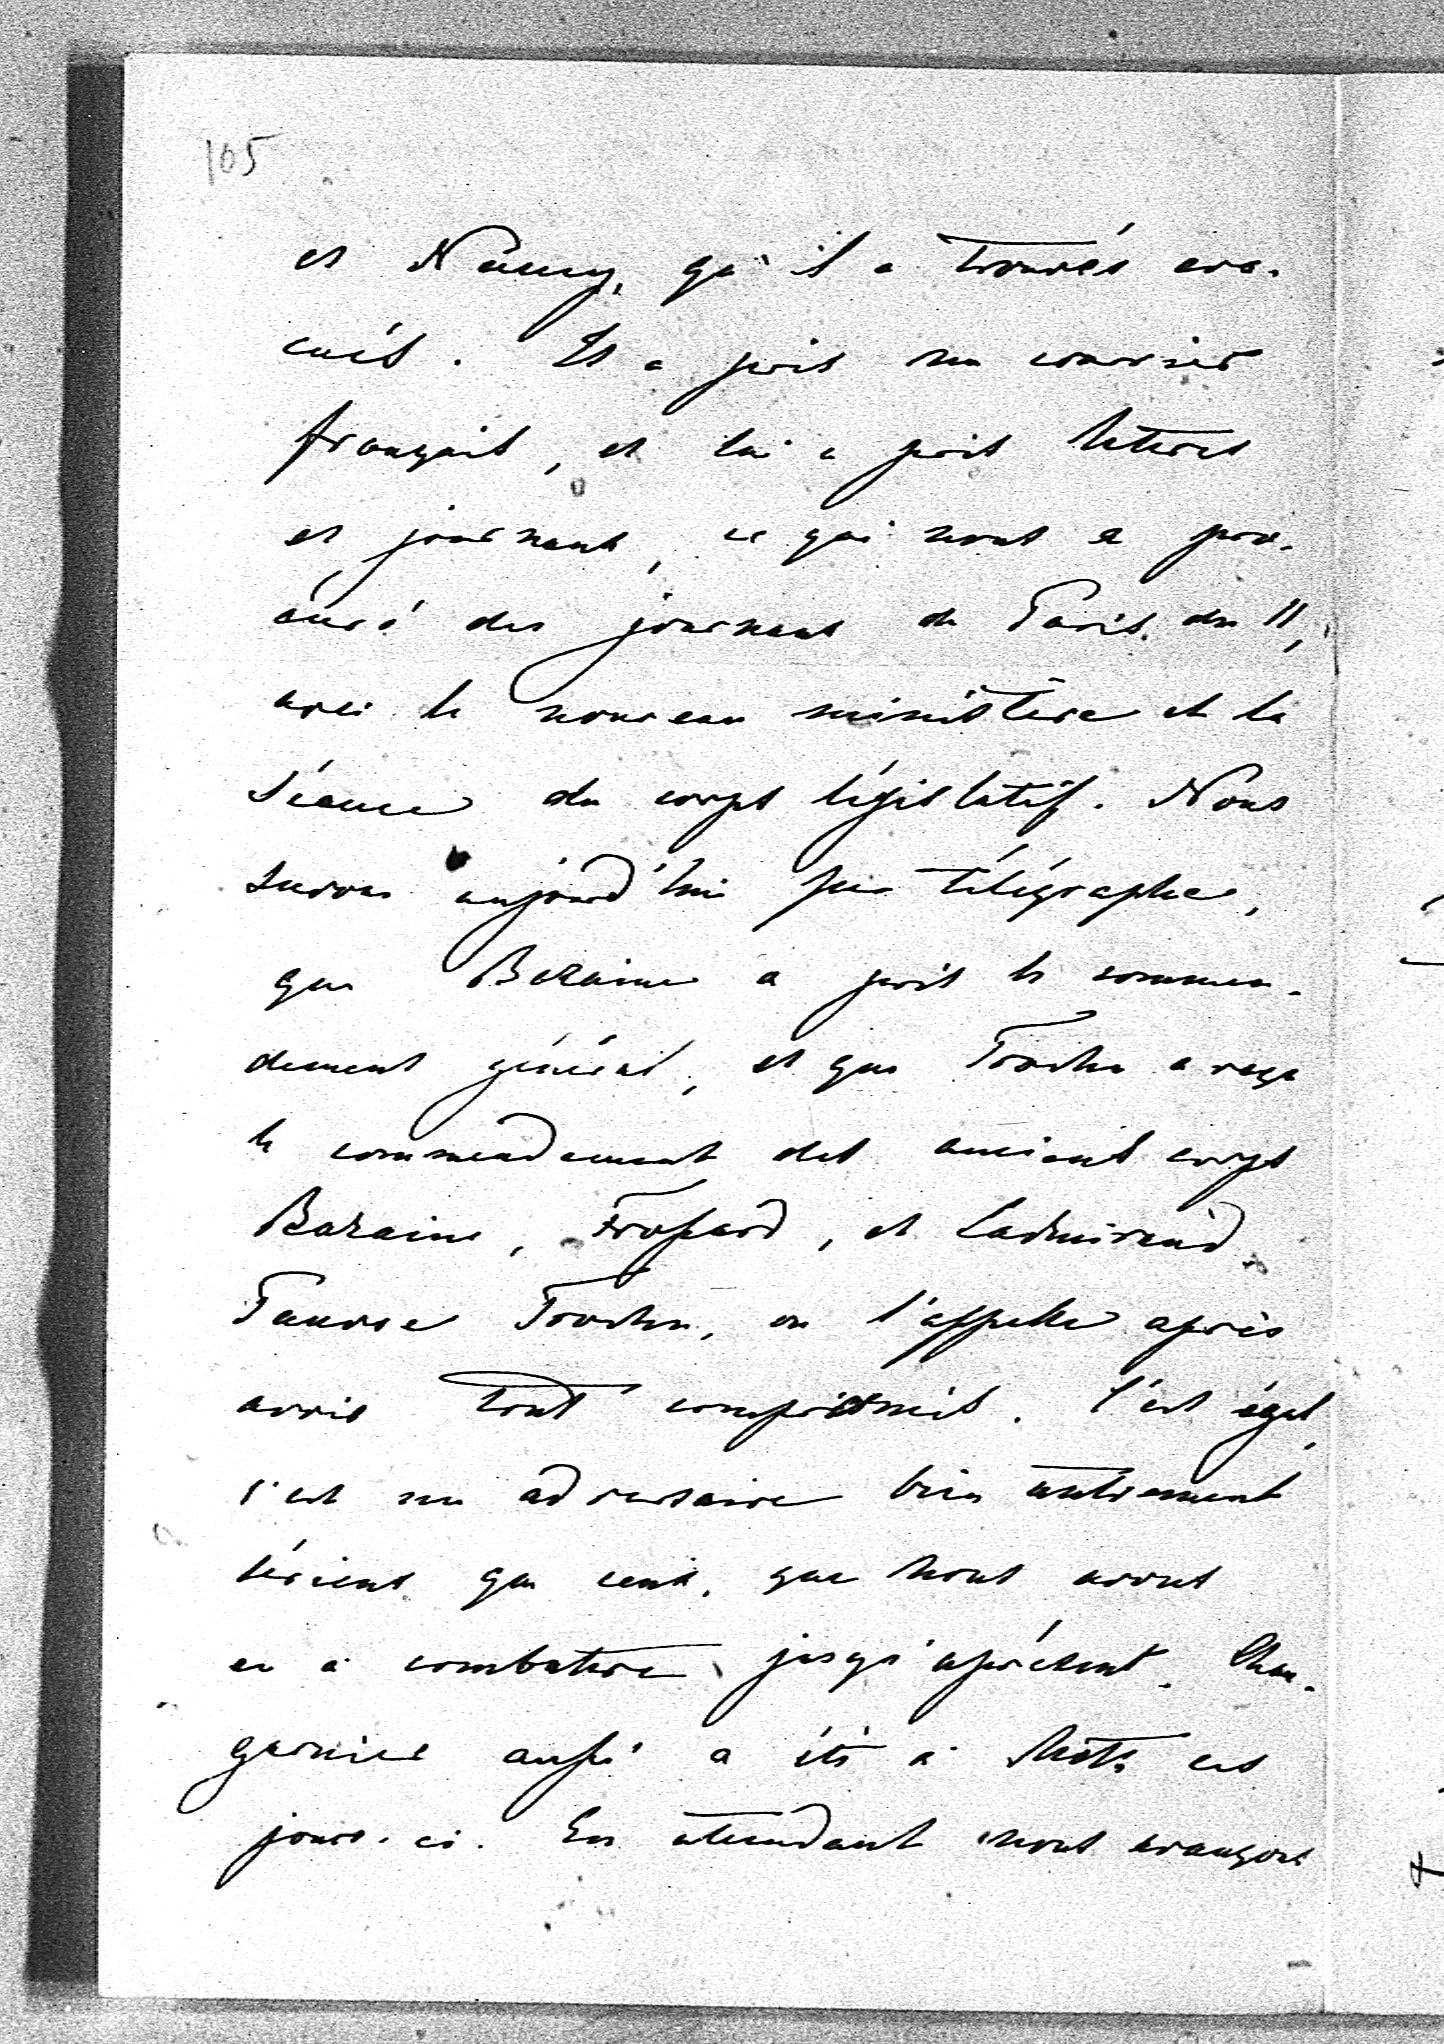 105
et Nancy, qu'il a trouvés éva-
cués. Il a pris un courrier
français, et lui a pris lettres
et journaux, ce qui nous a pro-
curé des journaux de Paris du 11,
avec le nouveau ministère et la
séance du corps législatif. Nous
savons aujourd'hui par télégraphe,
que Bazaine a pris le comman-
dement général, et que Trochu a reçu
le commandement des anciens corps
Bazaine, Frossard, et Ladmiraud
Pauvre Trochu, on l'appelle après
avoir tout compromis. C'est égal,
c'est un adversaire bien autrement
sérieux que ceux, que nous avons
eu à combattre jusqu'aprésent. Chan-
garnier aussi a été à Metz ces
jours-ci. En attendant nous avançons